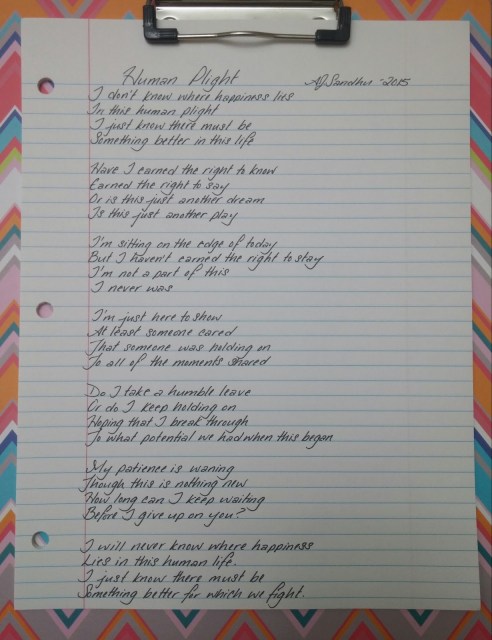 Human Plight AJSandhu -2015
I don't know where happiness lies
In this human plight
I just know there must be
Something better in this life
Have I earned the right to know
Earned the right to say
Or is this just another dream
Is this just another play
I'm sitting on the edge of today
But I haven't earned the right to stay
I'm not a part of this
I never was
I'm just here to show
At least someone cared
That someone was holding on
To all of the moments shared
Do I take a humble leave
Or do I keep holding on
Hoping that I break through
To what potential we had when this began
My patience is waning
Though this is nothing new
How long can I keep waiting
Before I give up on you?
I will never know where happiness
Lies in this human life.
I just know there must be
Something better for which we fight.